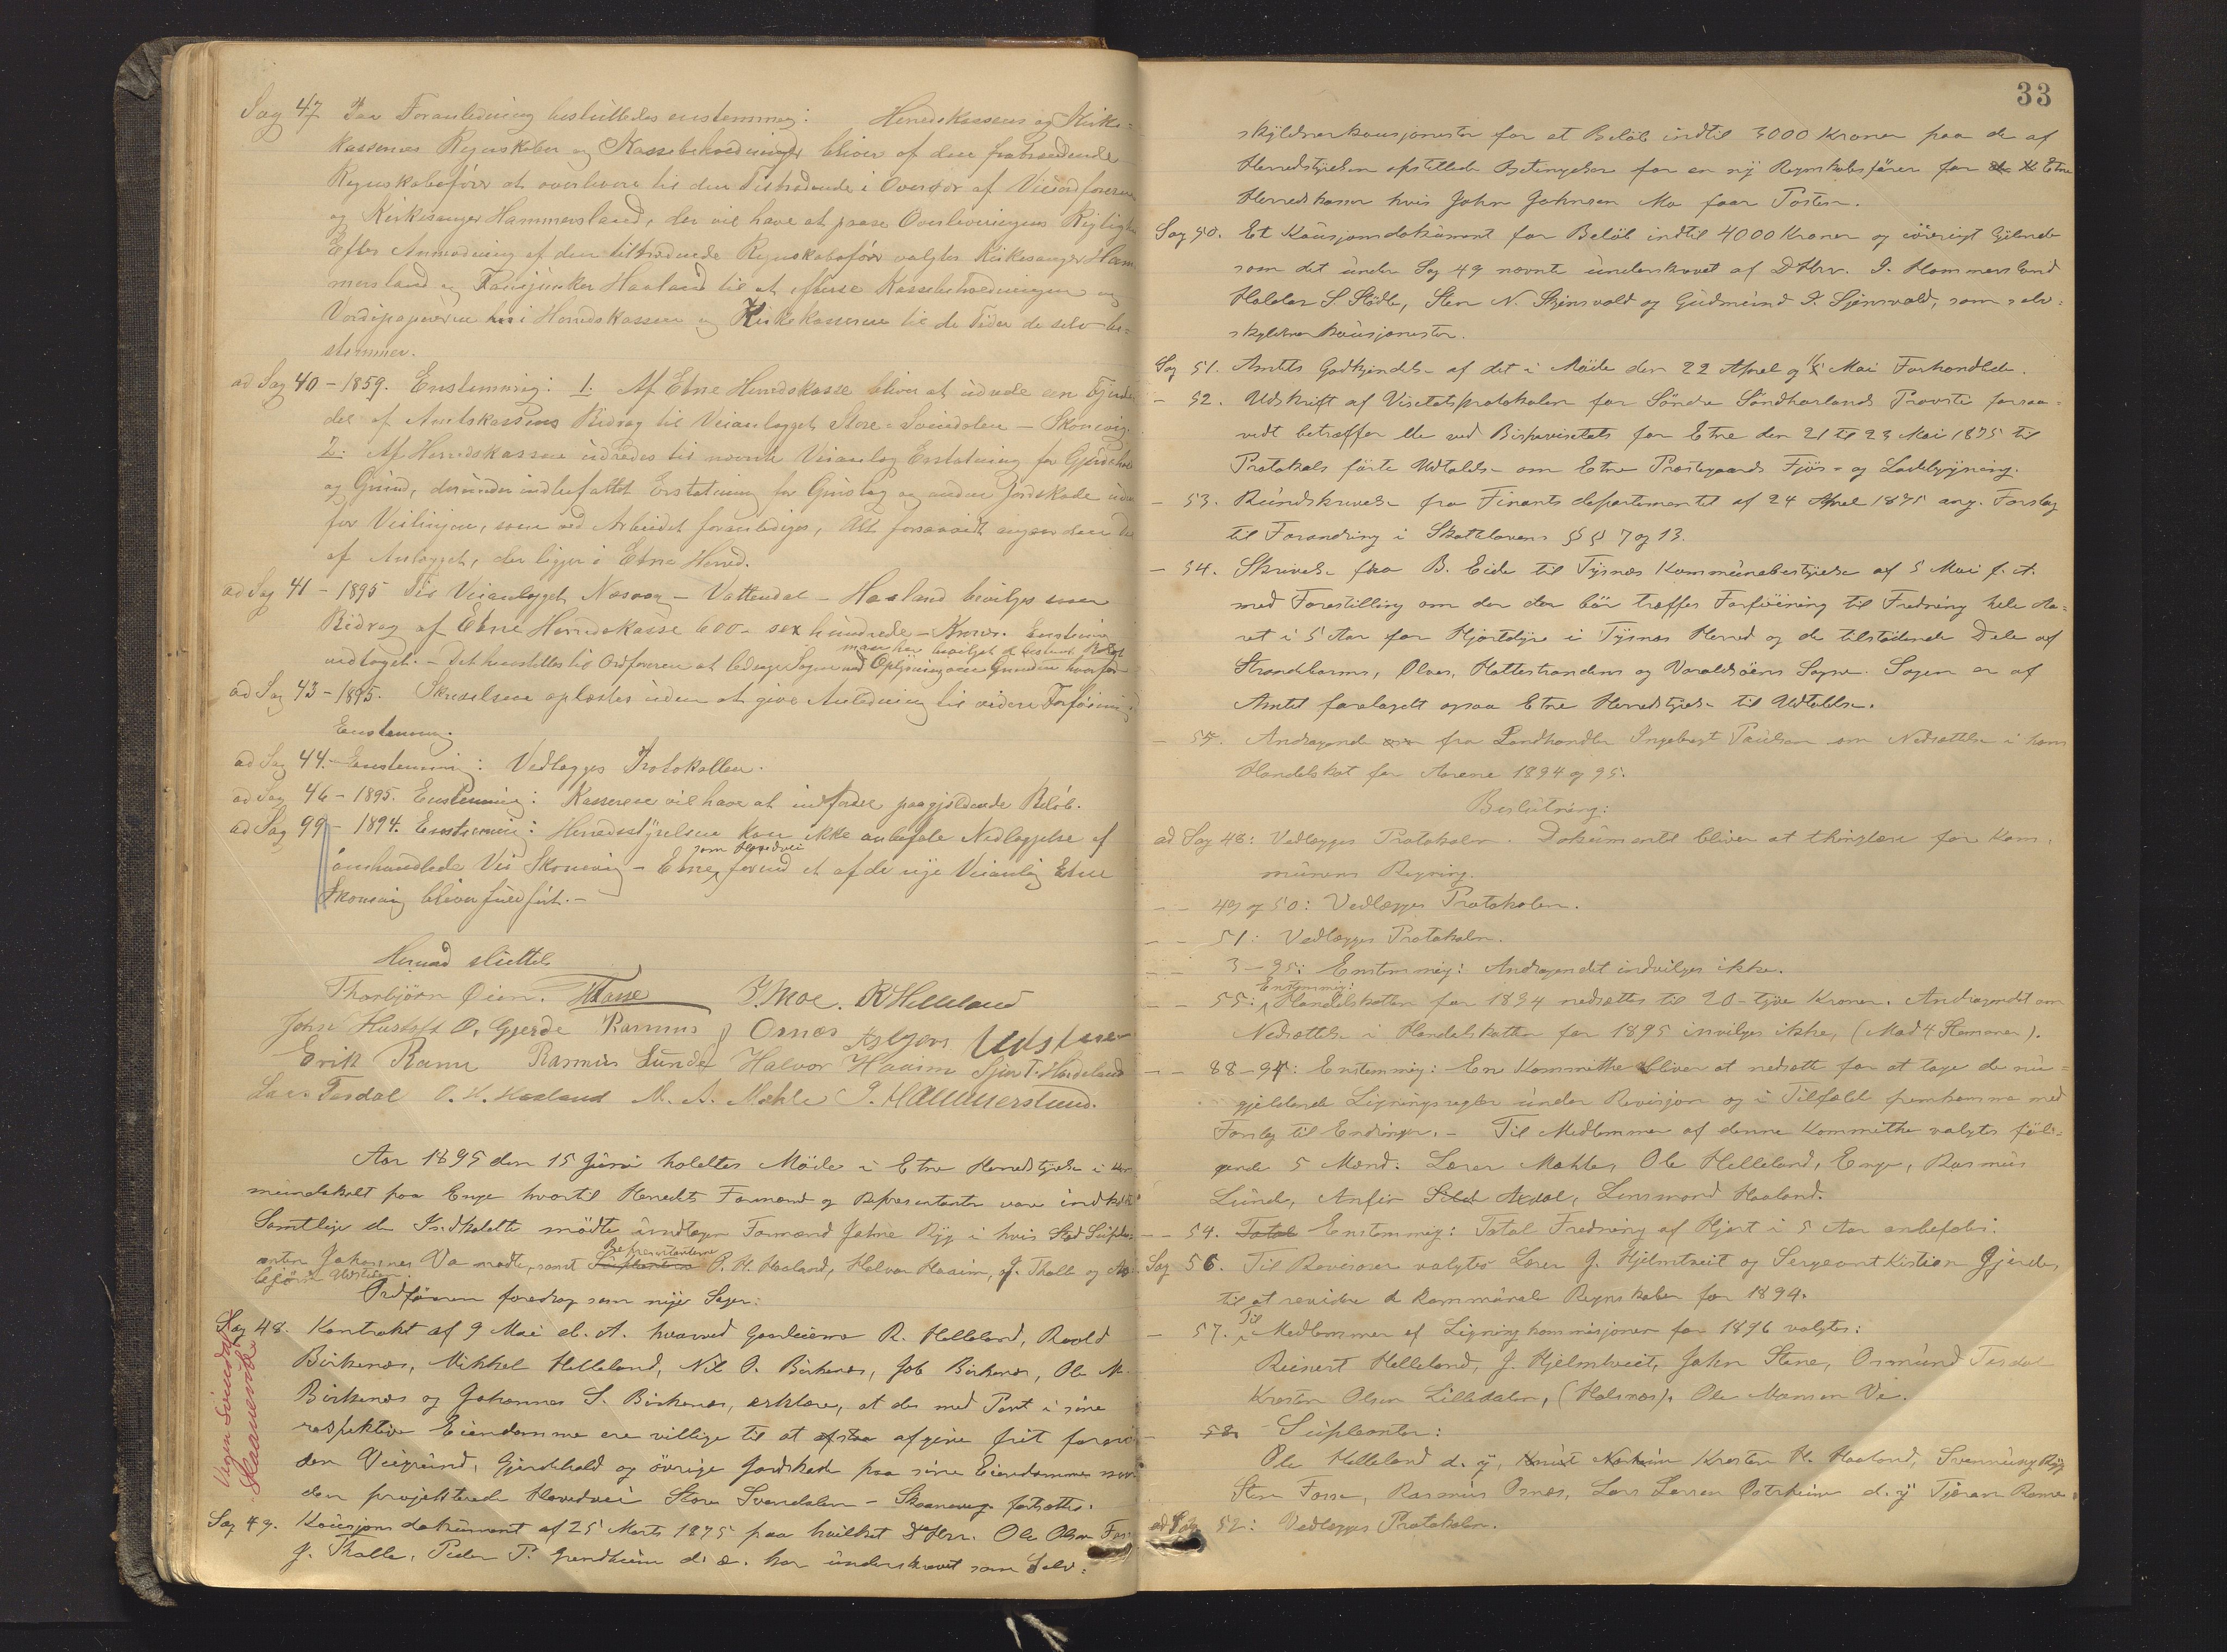 Sag 47 Paa Foranledning besluttedes enstemmig: Herredskassens og Kirke=
kassernes Regnskaber og Kassebeholdninger bliver af den fratrædende
Regnskabsfører at overlevere til den Tiltrædende i Overvær af Viceordføreren
og Kirkesanger Hammersland, der vil have at paase Overleveringens Rigtighed
Efter Anmodning af den tiltrædende Regnskabsfører valgtes Kirkesanger Ham
mersland og Haaland til at efterse Kassebeholdningen og
Værdipapirerne i Herredskassen og Kirkekasserne til de Tider de selv be=
stemmer.
ad Sag 40 - 1859. Enstemmig: 1. Af Etne Herredskasse bliver at udrede en Fjerde
del af Amtskassens Bidrag til Veianlægget Store-Svendalen - Skonevig.
2. Af Herredskassen udredes til nævnte Veianlæg Erstatning for Gjerdehold
og Grund, derunder indbefattet Erstatning for Grustag og anden Jordskade uden
for Veilinjen, som ved Arbeidet foranlediges, Alt forsaavidt angaar den Del
af Anlægget, der ligger i Etne Herred.
ad Sag 41 - 1895 Til Veianlægget Næsvaag - Vattendal - Haaland bevilges som
Bidrag af Etne Herredskasse 600 - sex hundrede - Kroner. Enstemmig
man har bevilget et bestemt Beløb
vedtaget. - Det henstilles til Ordføreren at ledsage Sagen med Oplysning om Grunden hvorfor
ad Sag 43 - 1895. Skrivelsen oplæstes uden at give Anledning til videre Forføining
Enstemmig.
ad Sag 44. - Enstemmig: Vedlægges Protokollen.
ad Sag 46 - 1895. Enstemmig: Kassereren vil have at indfordre paagjældende Beløb.
ad Sag 99 - 1894. Enstemmig: Herredsstyrelsen kan ikke anbefale Nedlæggelse af
som Hovedvei
omhandlede Vei Skonevig - Etne, forend et af de nye Veianlæg Etne
Skonevig bliver fuldført. -
Hermed sluttet
Thorbjørn Øien. HFasse J. Moe. R Helleland
John Hustoft O. Gjerde Rasmus J Ornæs Asbjørn
Erik Rame Rasmus Lunde Halvor Haaim Sjur T. Hardeland
Lars Tesdal O. H. Haaland M. A. Mæhle J. Hammersland.
Aar 1895 den 15 Juni holdtes Møde i Etne Herredstyrelse i Kom
munelokalet paa Enge hvortil Herredets Formænd og Repræsentanter vare indkaldte
Samtlige de Indkaldte mødte undtagen Formand John Ryg i hvis Sted Suple=
Repræsentanterne
anten Johannes Va mødte, samt Suplanten O. H. Haaland, Halvor Haaim, J. Tholle og As
bjørn
Ordføreren foredrog som nye Sager:
Veien Svendal
Skaanevik
Sag 48. Kontrakt af 9 Mai d. A. hvorved Gardeierne R. Helleland, Roald
Birkenæs, Mikkel Helleland, Nil O. Birkenæs, Job Birkenæs, Ole M.
Birkenæs og Johannes S. Birkenæs, erklære, at de med Part i sine
respektive Eiendomme ere villige til at afstaa afgive frit fornø
den Veigrund, Gjerdehold og øvrige Jordskade paa sine Eiendomme ved
den projekterede Hovedvei Store Svendalen - Skaanevig fortsættes.
Sag 49. Kausjons dokument af 25 Marts 1895 paa hvilket DHrr. Ole Olsen
J. Tholle, Peder P. Grindheim d. æ. har underskrevet som Selv=
33
skyldnerkausjonister for et Beløb indtil 3000 Kroner paa de af
Herredstyrelsen opstillede Betingelser for en ny Regnskabsfører for Etne
Herredskasse hvis John Johnsen Mo faar Posten.
Sag 50. Et Kausjonsdokument for Beløb indtil 4000 Kroner og iøvrigt lydende
som det under Sag 49 nævnte underskrevet af DHrr. I. Hammersland
Haldor S Stødle, Sten N. Skjensvold og Gudmund I. Skjensvold, som selv=
skyldner kausjonister.
Sag 51. Amtets Godkjendelse af det i Møde den 22 April og Mai Forhandlede.
- 52. Udskrift af Visetatsprotokolen for Søndre Søndhorlands Provsti forsaa=
vidt betræffer de ved Bispevisetats for Etne den 21 til 23 Mai 1895 til
Protokols førte Udtalelse om Etne Præstegaards Fjøs- og Ladebygning.
- 53. Rundskrivelse fra Finants departementet af 24 April 1895 ang. Forslag
til Forandring i Skattelovens §§ 7 og 13.
- 54. Skrivelse fra B. Eide til Tysnæs Kommunebestyrelse af 5 Mai f. A.
med Forestilling om den der bør træffes Forføining til Fredning hele Aa=
ret i 5 Aar for Hjortedyr i Tysnæs Herred og de tilstødende Dele af
Strandebarms, Ølves, Hattestrandens og Varaldsøens Sogne. Sagen er af
Amtet forelagdt ogsaa Etne Herredstyrelse til Udtalelse.
- 55. Andragende fra Landhandler Ingebrigt Paulsen om Nedsættelse i hans
Handelskat for Aarene 1894 og 95.
Beslutning:
ad Sag 48: Vedlægges Protokolen. Dokumentet bliver at thinglæse for Kom=
munens Regning.
- - 49 og 50: Vedlægges Protokolen.
- - 51: Vedlægges Protokolen.
- - 3-95: Enstemmig: Andragendet indvilges ikke.
Enstemmig:
- - 55: Handelskatten for 1894 nedsættes til 20 - tyve Kroner. Andragendet om
Nedsættelse i Handelskatten for 1895 invilges ikke, (Mod 4 Stemmer).
- - 88-94: Enstemmig: En Kommithe bliver at nedsætte for at tage de nu=
gjeldende Ligningsregler under Revisjon og i Tilfælde fremkomme med
Forslag til Endringer. - Til Medlemmer af denne Kommithe valgtes føl=
gende 5 Mænd: Lærer Mæhle, Ole Helleland, Enge, Rasmus
Lunde, Anfin Axdal, Lensmand Haaland.
- - 54. Total Enstemmig: Total Fredning af Hjort i 5 Aar anbefales.
Sag 56. Til Revisorer valgtes Lærer J. Hjelmtveit og Sergeant Kistian Gjerde,
til at revidere de kommunale Regnskaber for 1894.
Til
- 57. Medlemmer af Ligningskommisjonen for 1896 valgtes:
Reinert Helleland, J. Hjelmtveit, John Stene, Osmund Tesdal
Kresten Olsen Lilledalen, (Halsnæs), Ole Monsen Ve.
- 58. Supleanter:
Ole Helleland d. y, Knut Kresten H. Haaland, Svenning Ryg
Sten Fosse, Rasmus Ornæs, Lars Larsen Østrheim d. y Tjeran Rame.
ad Sag 52: Vedlægges Protokolen.